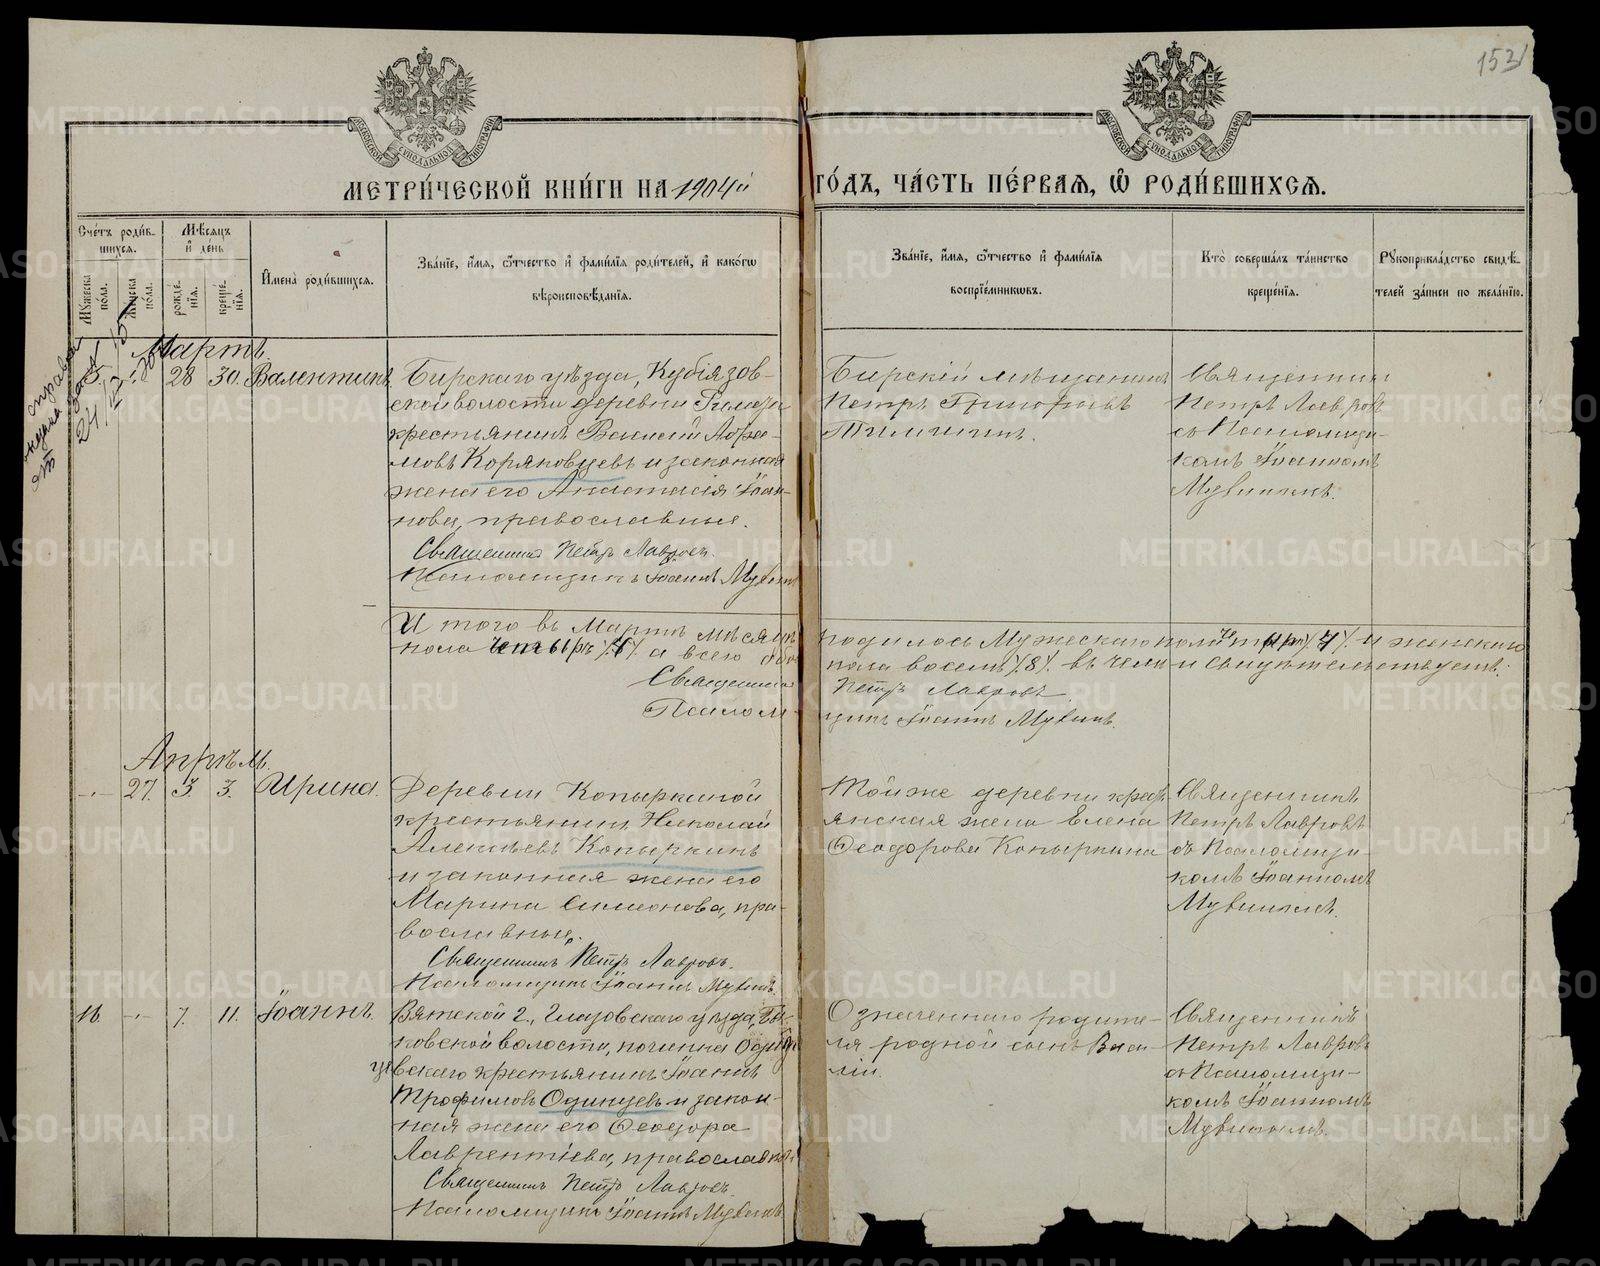 153
МОСКОВСКОЙ СѴНОДАЛЬНОЙ ТИПОГРАФІИ
МОСКОВСКОЙ СѴНОДАЛЬНОЙ ТИПОГРАФІИ
МЕТРИ́ЧЕСКОЙ КНИ́ГИ НА 1904й ГО́ДЪ, ЧА́СТЬ ПЕ́РВАЯ, Ѽ РОДИ́ВШИХСЯ.
Сче́тъ роди́вшихся.
Мꙋ́жеска пола.
Же́нска по́ла.
Мѣ́сяцъ и҆ де́нь
рожде́нїѧ.
креще́нїѧ.
И҆мена̀ роди́вшихсѧ.
Зва́нїе, и҆́мѧ, ѻ҆́тчество и҆ фами́лїѧ роди́телей, и҆ како́гѡ
вѣроисповѣ́данїѧ.
Зва́нїе, и҆́мѧ, ѻ҆́тчество и҆ фами́лїѧ
воспрїе́мникѡвъ.
Кто̀ соверша́лъ та́инство
креще́нїѧ.
Рꙋкоприкла́дство свидѣ́-
телей за́писи по жела́нїю.
Мартъ.
15. 28 30. Валентинъ.
Бирскаго уѣзда, Кубіязов-
ской волости деревни
крестьянинъ Василій Абра-
мовъ Коряковцевъ и законная
жена его Анастасія Іоан-
нова, православные.
Священникъ Петръ Лавровъ.
Псаломщикъ Іоаннъ Мувинъ
Бирскій мѣщанинъ
Петръ Григорьевъ
Священникъ
Петръ Лавровъ
съ Псаломщи-
комъ Іоанномъ
Мувинымъ.
Итого въ Мартѣ мѣсяцѣ родилось Мужескаго пола четыре /4/ и женскаго
пола четыре /4/ а всего обоего пола восемь /8/ въ чемъ и свидѣтельствуемъ.
Священникъ Петръ Лавровъ
Псаломщикъ Іоаннъ Мувинъ.
Апрѣль.
-"- 27. 3. 3. Ирина.
Деревни Копыркиной
крестьянинъ Николай
Алексѣевъ Копыркинъ
и законная жена его
Марина Симеонова, пра-
вославные.
Священникъ Петръ Лавровъ.
Псаломщикъ Іоаннъ Мувинъ.
Той же деревни кресть-
янская жена Елена
Ѳеодорова Копыркина
Священникъ
Петръ Лавровъ
съ Псаломщи-
комъ Іоанномъ
Мувинымъ.
16. -"- 7. 11. Іоаннъ.
Вятской г., Глазовскаго уѣзда,
ковской волости, починка Один-
цевскаго крестьянинъ Іоаннъ
Трофимовъ Одинцевъ и закон-
ная жена его Ѳеодора
Лаврентіева, православные
Священникъ Петръ Лавровъ.
Псаломщикъ Іоаннъ Мувинъ
Означеннаго родите-
ля родной сынъ Васи-
лій.
Священникъ
Петръ Лавровъ
съ Псаломщи-
комъ Іоанномъ
Мувинымъ.
METRIKI.GASO-URAL.RU